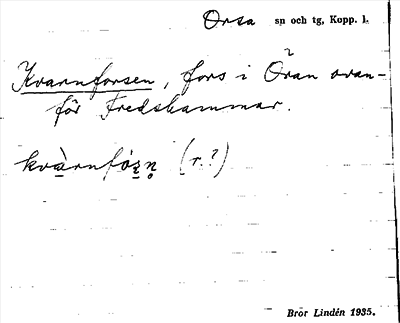 Orsa sn och tg, Kopp. l.
Kvarnforsen, fors i Öran ovan-
för Fredshammar.
kvàrnfósn̥ (r.?)
Bror Lindén 1935.